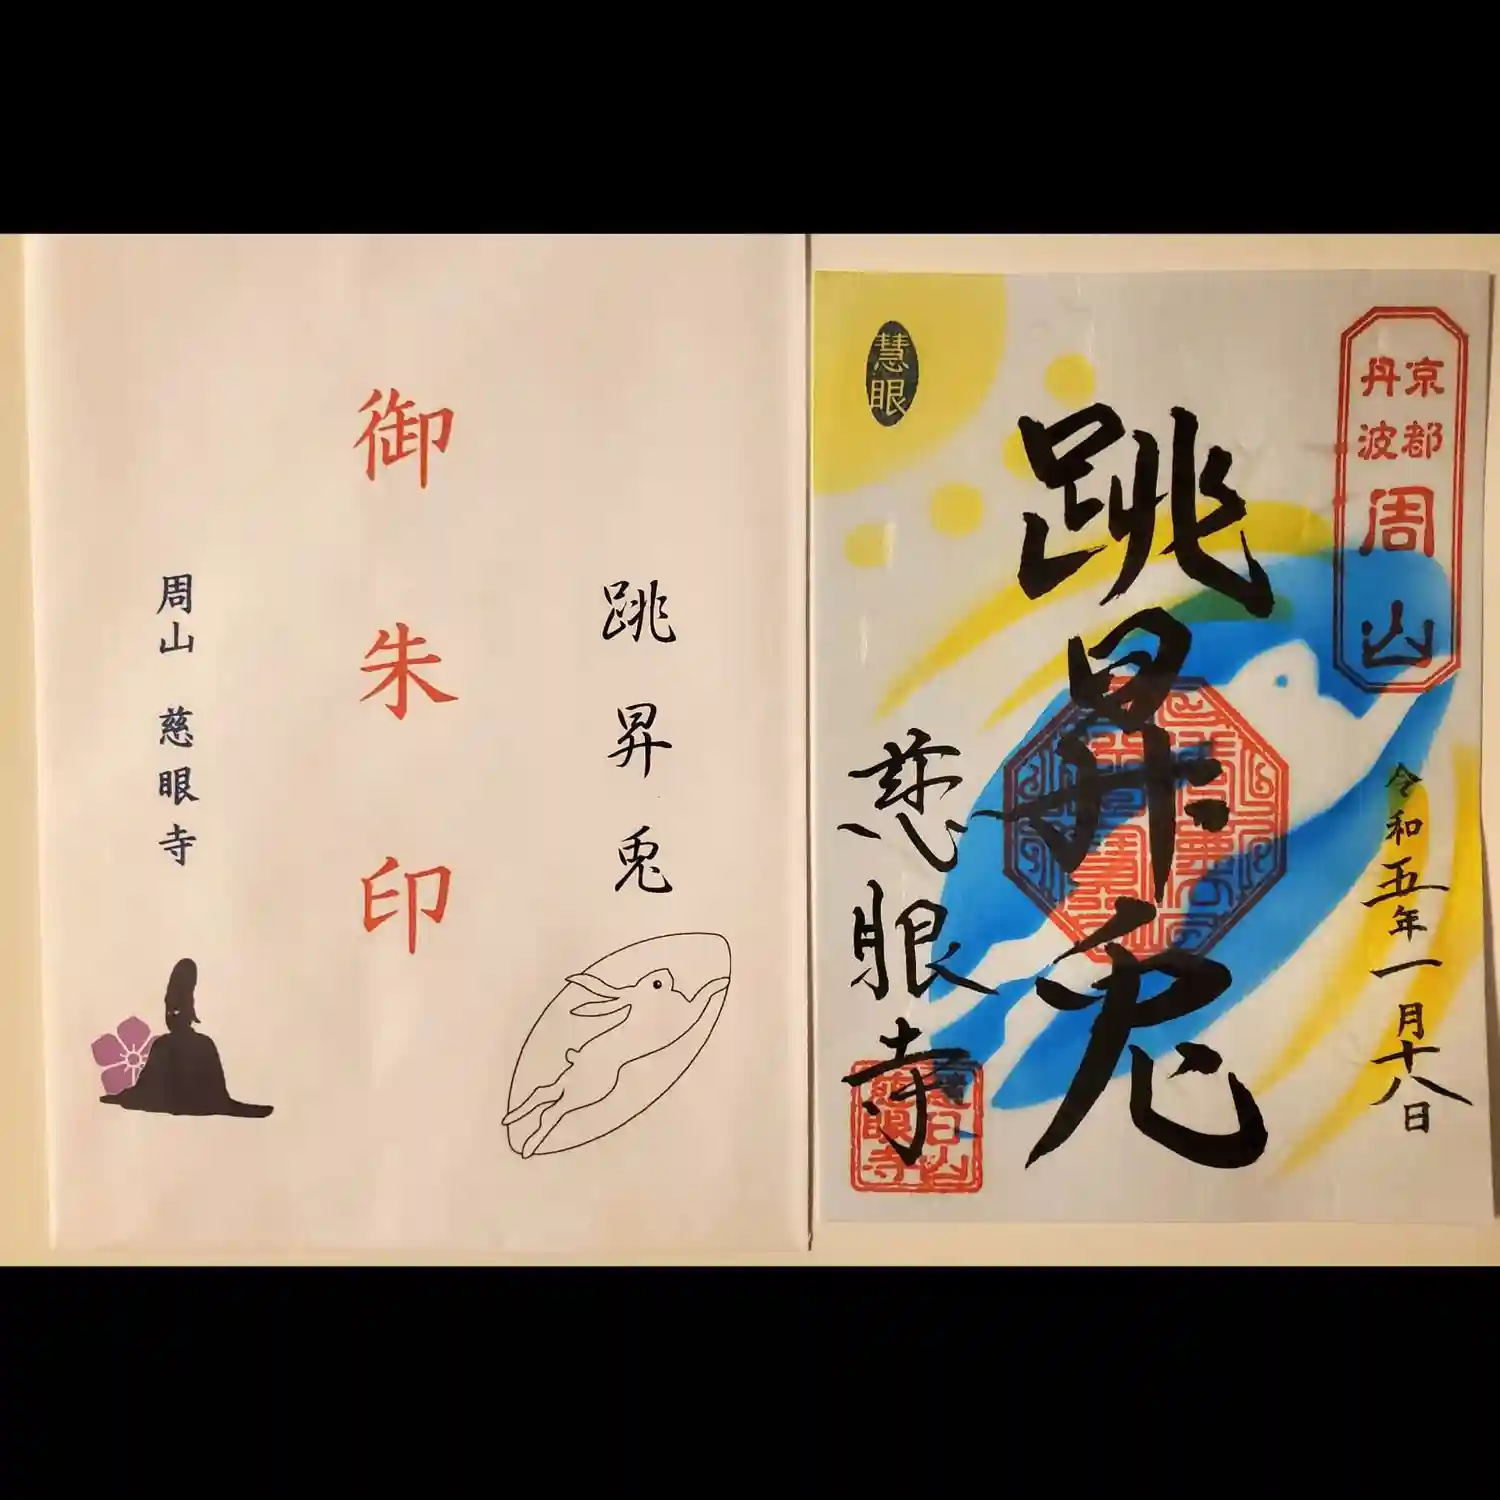 跳昇兎
御朱印
周山 慈眼寺
京都
丹波
周山
令和五年一月十八日
跳昇兎
慧眼
慈眼寺
慈眼寺